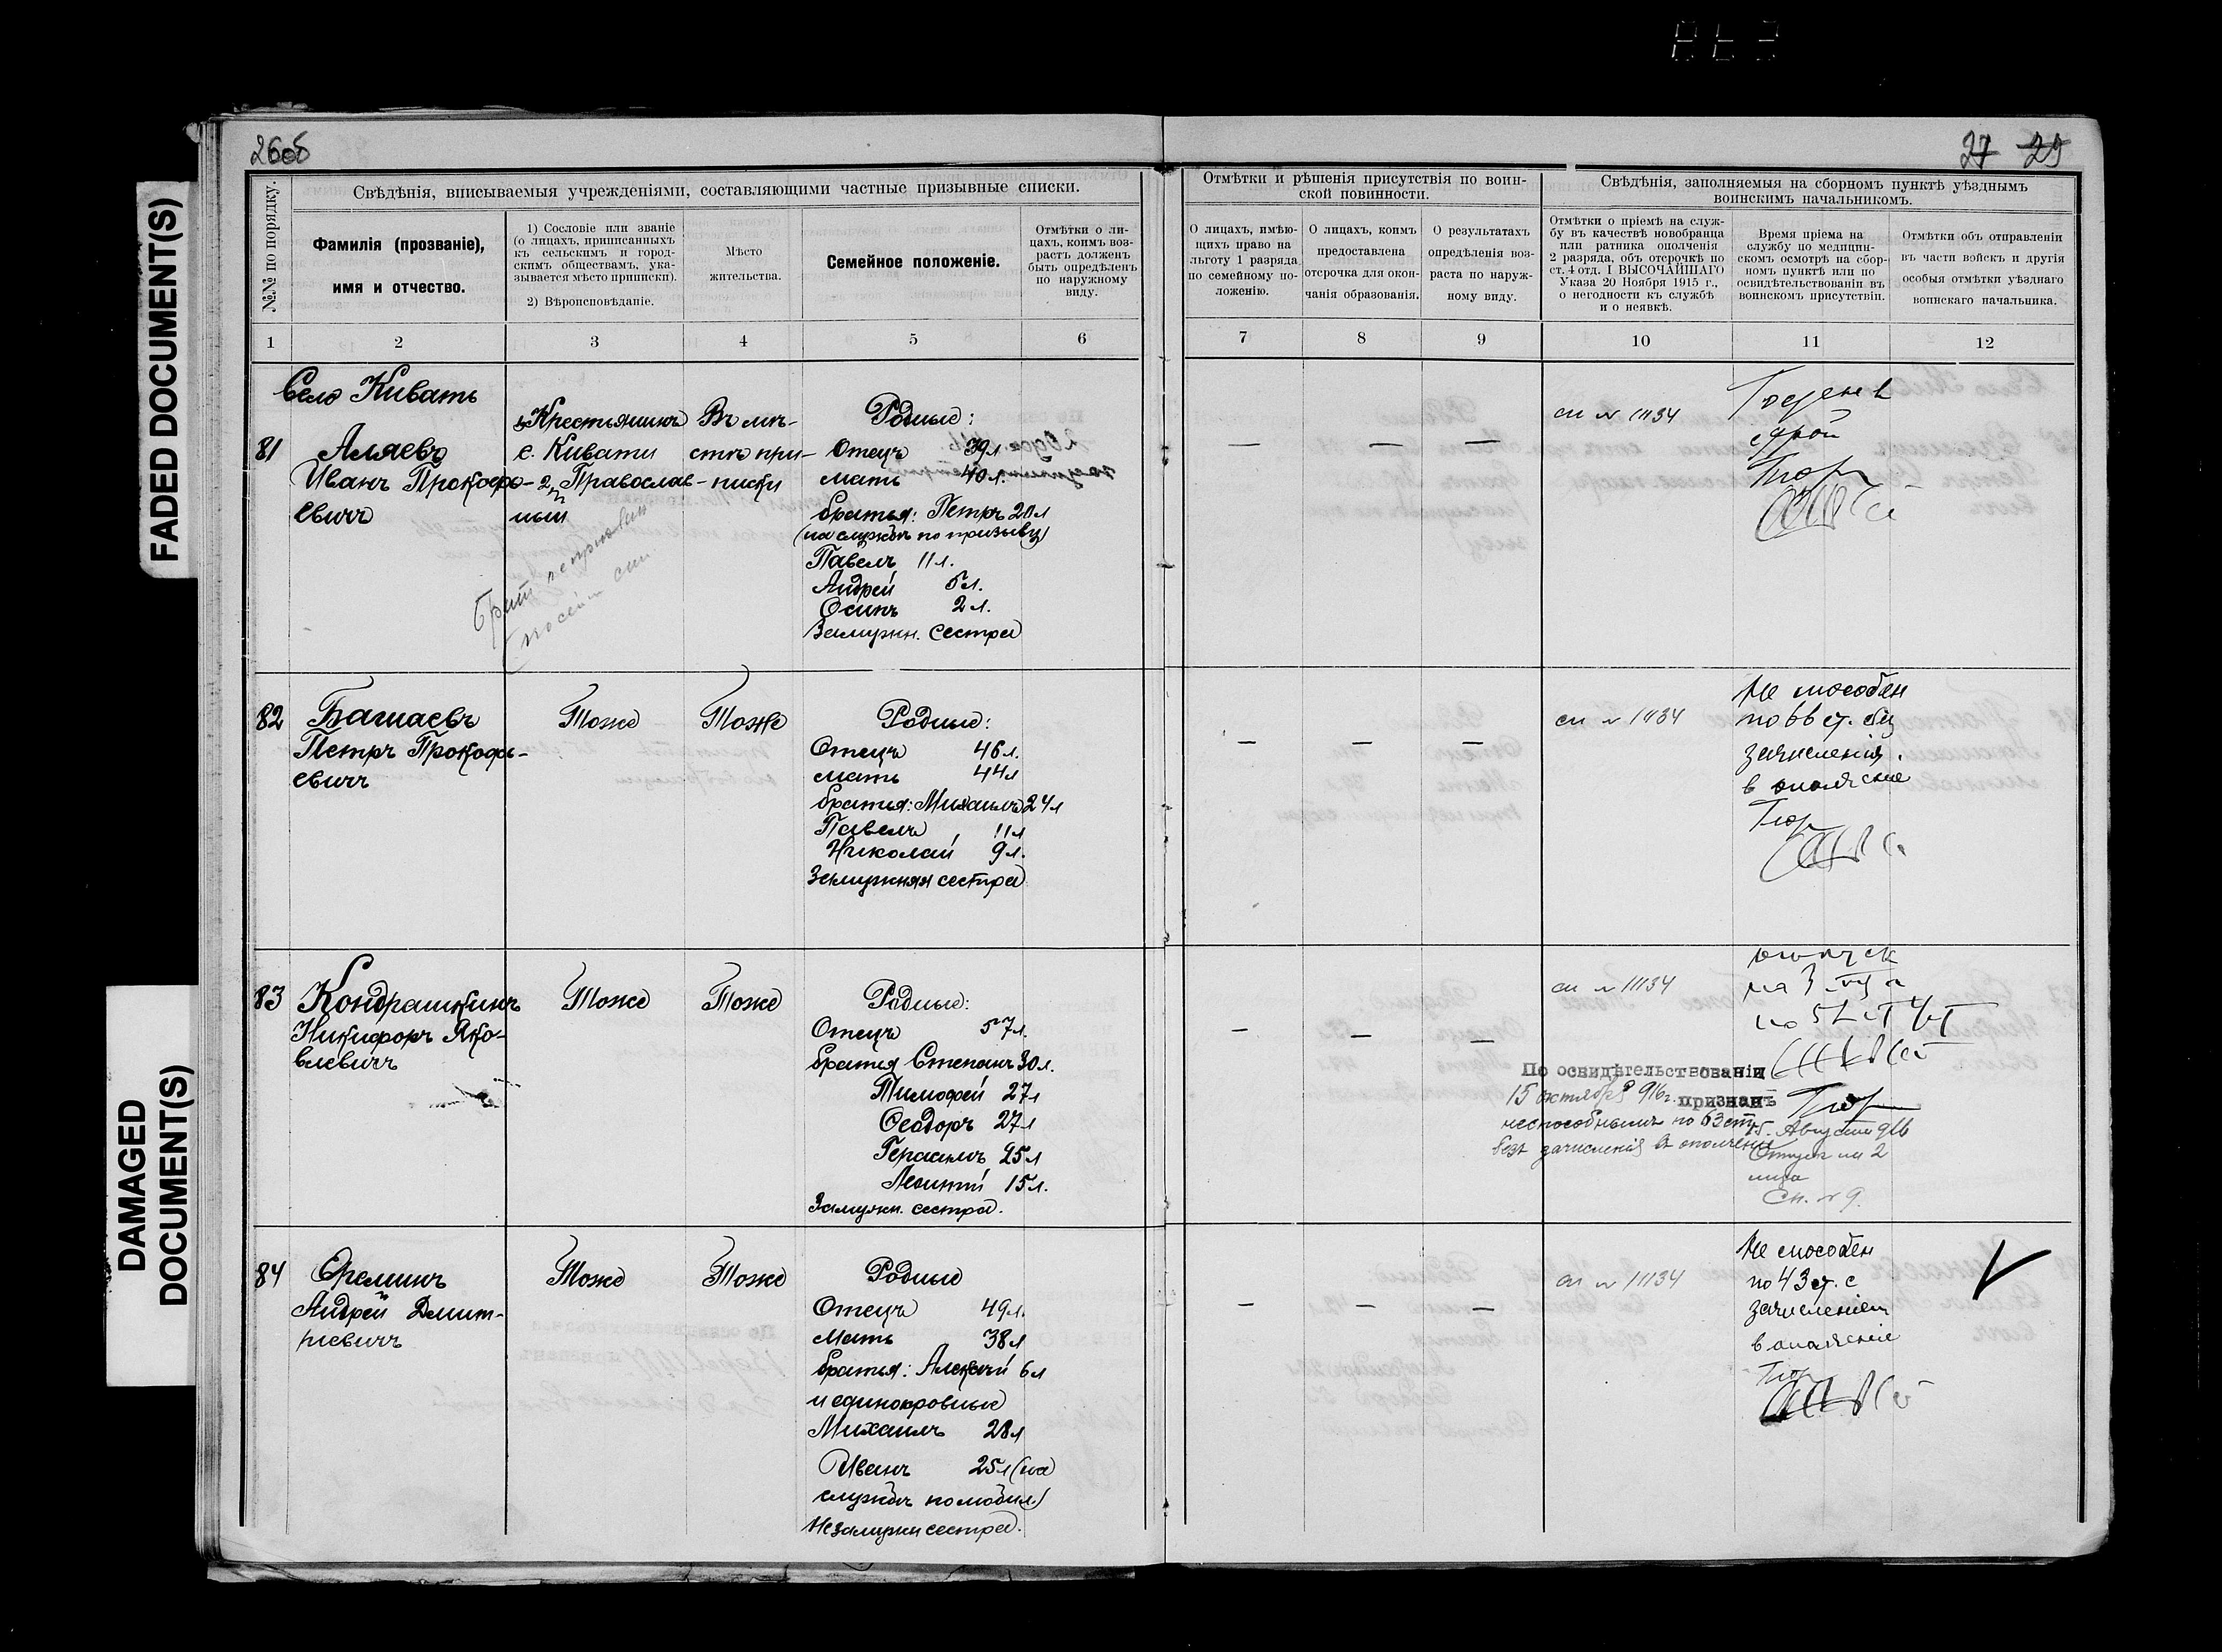 FADED DOCUMENT(S)
DAMAGED
DOCUMENT(S)
26об
27 29
Свѣдѣнія, вписываемыя учрежденіями, составляющими частные призывные списки.
Отмѣтки и рѣшенія присутствія по воин-
ской повинности.
Свѣдѣнія, заполняемыя на сборномъ пунктѣ уѣзднымъ
воинскимъ начальникомъ.
№№ по порядку.
Фамилія (прозваніе),
имя и отчество.
1) Сословіе или званіе
(о лицахъ, приписанныхъ
къ сельскимъ и город-
скимъ обществамъ, ука-
зывается мѣсто приписки).
2) Вѣроисповѣданіе.
Мѣсто
жительства.
Семейное положеніе.
Отмѣтки о ли-
цахъ, коимъ воз-
растъ долженъ
быть опредѣленъ
по наружному
виду.
О лицахъ, имѣю-
щихъ право на
льготу 1 разряда
по семейному по-
ложенію.
О лицахъ, коимъ
предоставлена
отсрочка для окон-
чанія образованія.
О результатахъ
опредѣленія воз-
раста по наруж-
ному виду.
Отмѣтки о пріемѣ на служ-
бу въ качествѣ новобранца
или ратника ополченія
2 разряда, объ отсрочкѣ по
ст. 4 отд. I ВЫСОЧАЙШАГО
Указа 20 Ноября 1915 г.,
о негодности къ службѣ
и о неявкѣ.
Время пріема на
службу по медицин-
скомъ осмотрѣ на сбор-
номъ пунктѣ или по
освидѣтельствованіи въ
воинскомъ присутствіи.
Отмѣтки объ отправленіи
въ части войскъ и другія
особыя отмѣтки уѣзднаго
воинскаго начальника.
1 2 3 4 5 6 7 8 9 10 11 12
Село Кивать
81
Аляевъ
Иванъ Прокофь-
евичъ
Крестьянинъ
с. Кивати
2, Православ-
ный
Въ мѣ-
стѣ при-
писки
Родные:
Отецъ 39л
мать 40л.
братья: Петръ 20л
(на службѣ по призыву)
Павелъ 11л.
Андрей 5л.
Осипъ 2л.
Замужн. сестра
— — —
сп № 11134
Годен в
82
Башаевъ
Петръ Прокофь-
евичъ
Тоже
Тоже
Родные:
Отецъ 46л.
мать 44л
братья: Михаилъ 24л
Павелъ 11л
Николай 9л.
Замужняя сестра
— — —
сп № 11134
Не способен
по 66 ст. без
зачисления
в ополчение
83
Кондрашкинъ
Никифоръ Яко-
влевичъ
Тоже
Тоже
Родные:
Отецъ 57л.
братья Степанъ 30л.
Тимофей 27л
Ѳеодоръ 27л
Герасимъ 25л
Леонтій 15л.
Замужн. сестра.
— — —
сп № 11134
отпуск
По освидѣтельствованіи
15 октября 916г. признанъ
неспособнымъ по 63 ст.
безъ зачисленія въ ополченіе
15. Августа 916
Отпуск на 2
Сп. № 9.
84
Еремин
Андрей Дмит-
ріевичъ
Тоже
Тоже
Родные
Отецъ 49л.
Мать 38л
братья: Алексѣй 6л
и единокровные
Михаилъ 28л
Иванъ 25л (на
службѣ по мобил.)
Незамужн сестра.
— — —
сп № 11134
Не способен
по 43 ст. с
зачислением
в ополчение